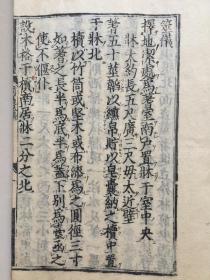 筮儀
擇地潔處爲蓍室南戶置牀于室中央
牀大約長五尺廣三尺毋太近壁
蓍五十莖韜以纁帛貯以皂囊納之櫝中置
于牀北
櫝以竹筒或堅木或布漆爲之圓徑三寸
如蓍之長半爲底半爲蓋下別爲臺函之
使不偃仆
設木格于櫝南居牀二分之北